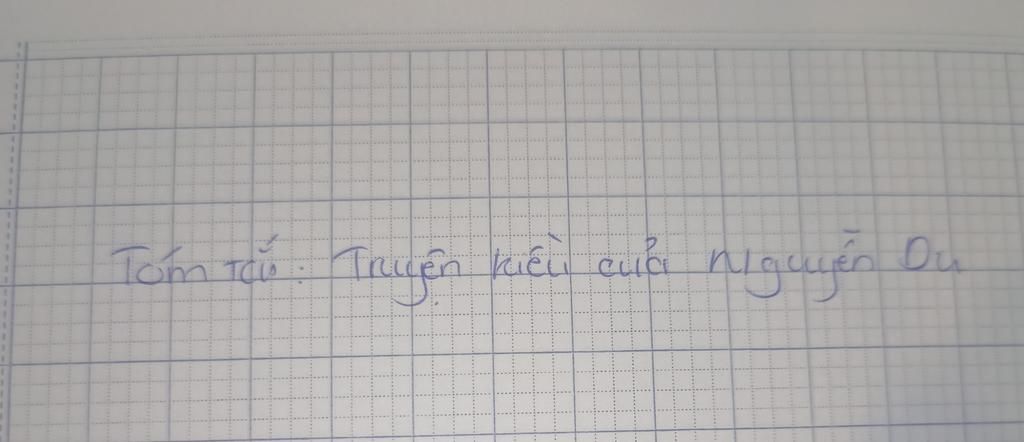 Tóm tắt: Truyện kiều của Nguyễn Du